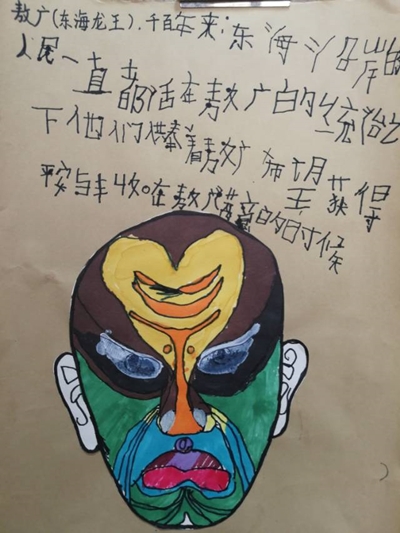 敖广(东海龙王).千百年来:东海沿岸的
人民一直都活在敖广的统治
下他们供奉着敖广希望获得
平安与丰收。在敖广高兴的时候